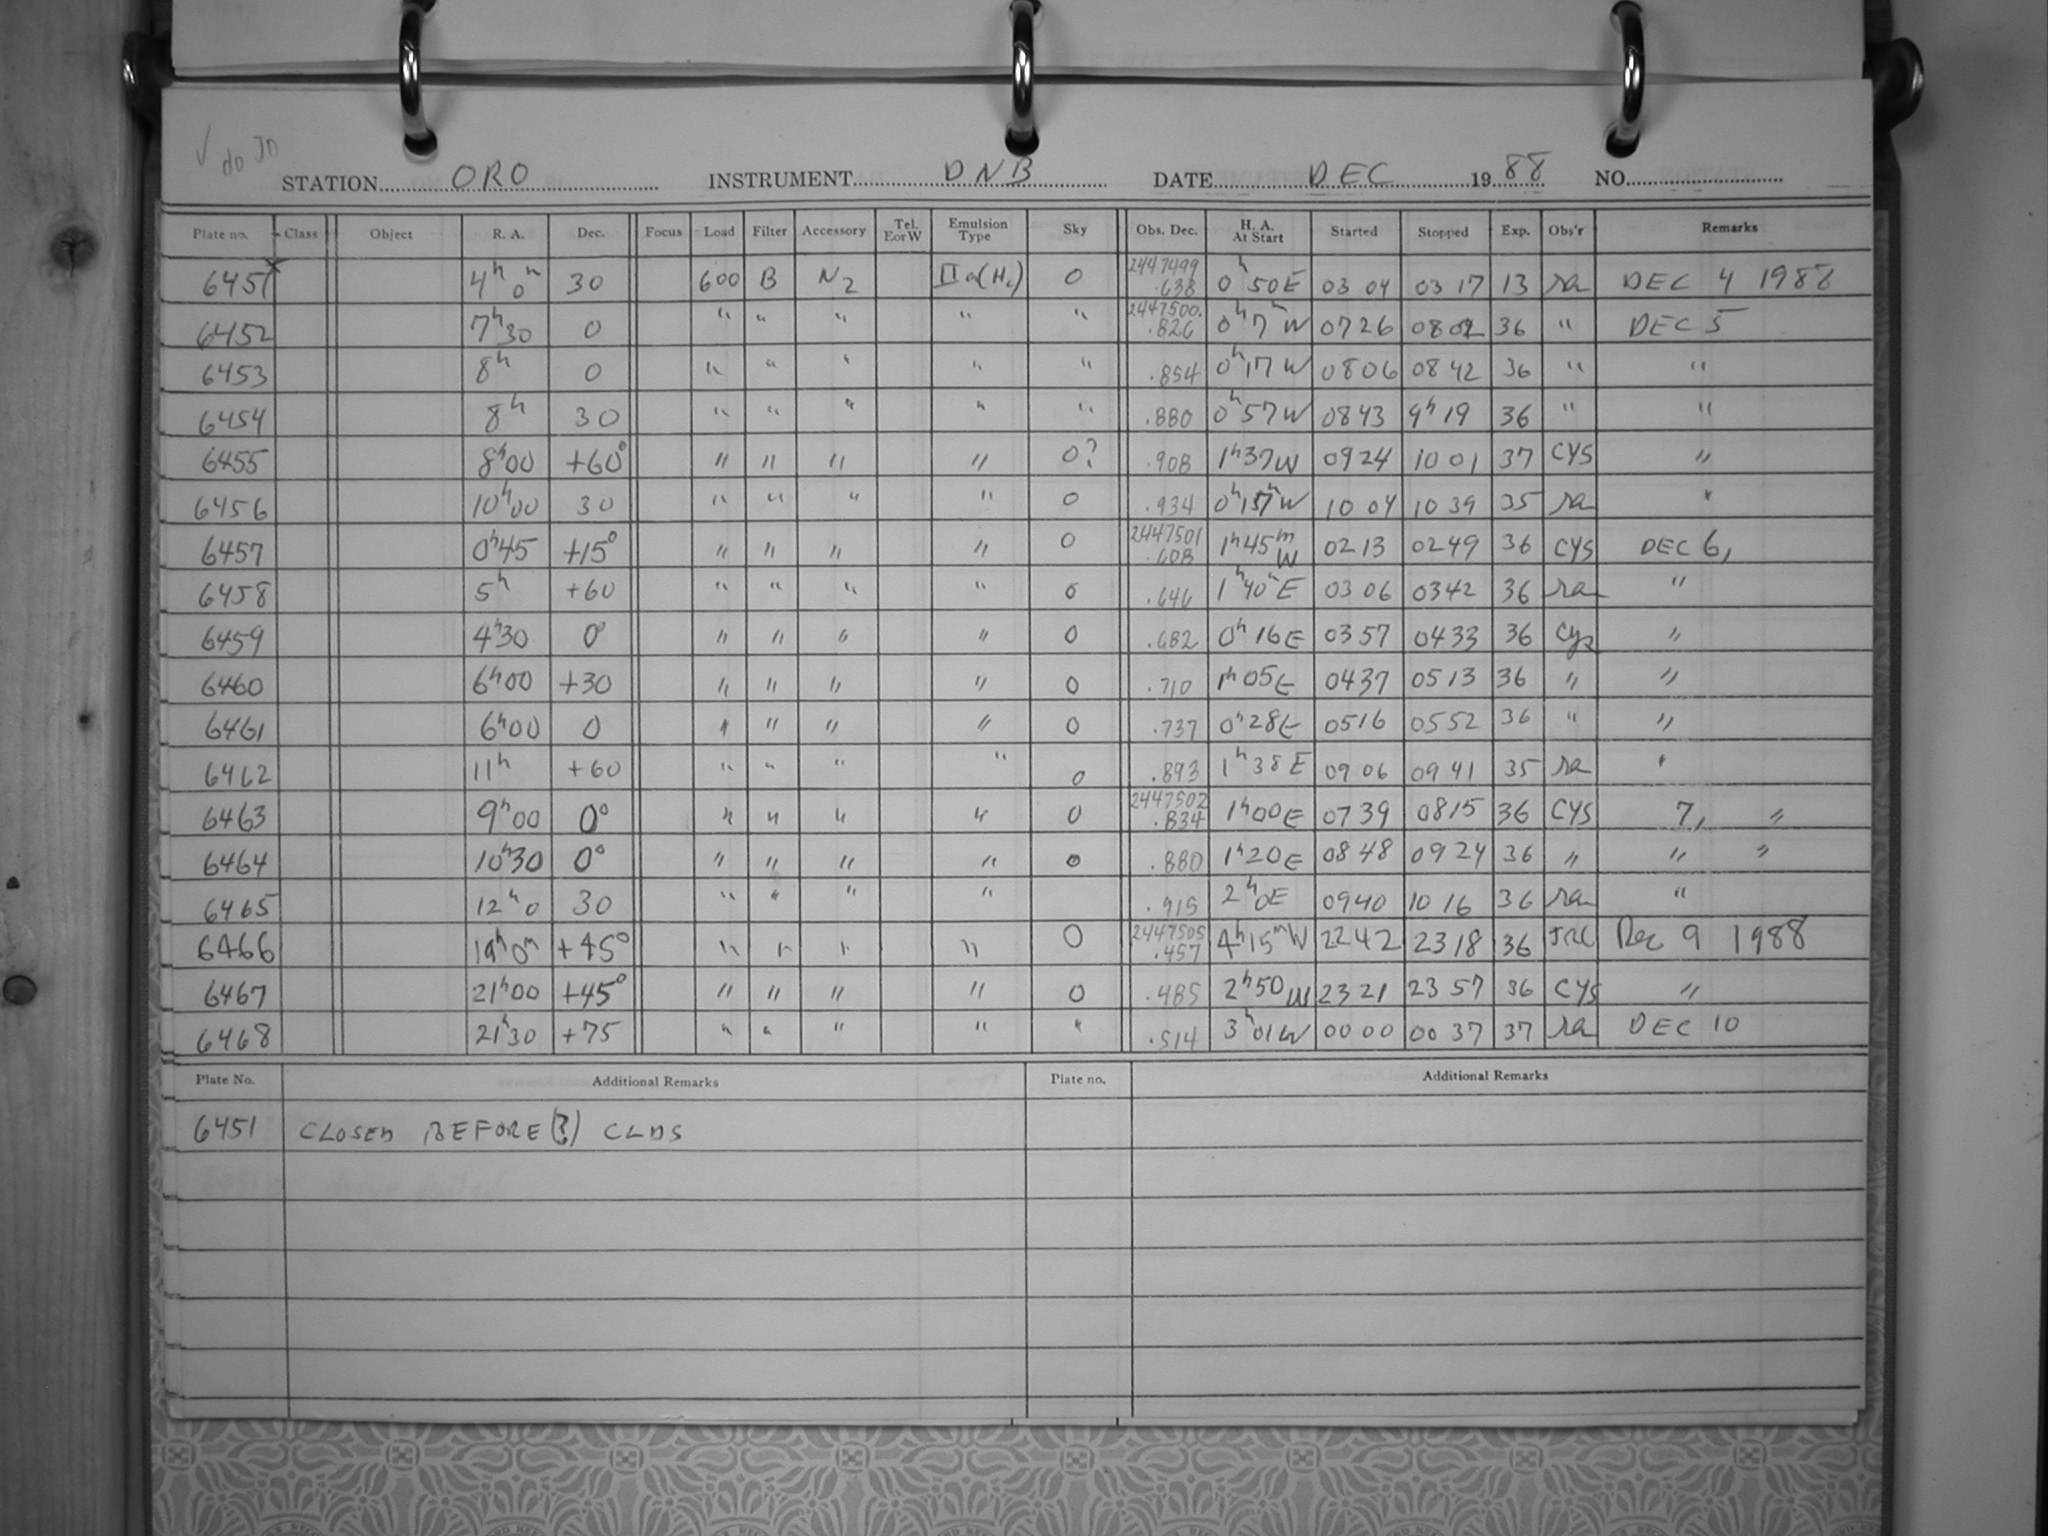 √ do JD
STATION ORO INSTRUMENT DNB DATE DEC 1988 NO.
Plate no. Class Object R. A. Dec. Focus Load Filter Accessory Tel. E or W Emulsion Type Sky Obs. Dec. H. A. At Start Started Stopped Exp. Obs'r Remarks
6451 x 4h 0m 30 600 B N2 IIa(H2) 0 2447499 .638 0h 50E 03 04 03 17 13 ra DEC 4 1988
6452 7h 30 0 " " " " " 2447500. .826 0h 7m W 07 26 08 02 36 " DEC 5
6453 8h 0 " " " " " .854 0h 17 W 08 06 08 42 36 " "
6454 8h 30 " " " " " .880 0h 57 W 08 43 9h 19 36 " "
6455 8h00 +60° " " " " 0? .908 1h 37W 09 24 10 01 37 CYS "
6456 10h00 30 " " " " 0 .934 0h 15m W 10 04 10 39 35 ra "
6457 0h45 +15° " " " " 0 2447501 .608 1h 45m W 02 13 02 49 36 CYS DEC 6,
6458 5h +60 " " " " 0 .646 1h 40m E 03 06 03 42 36 ra "
6459 4h30 0° " " " " 0 .682 0h 16 E 03 57 04 33 36 CYS "
6460 6h00 +30 " " " " 0 .710 1h 05 E 04 37 05 13 36 " "
6461 6h00 0 " " " " 0 .737 0h 28 E 05 16 05 52 36 " "
6462 11h +60 " " " " 0 .893 1h 38 E 09 06 09 41 35 ra "
6463 9h00 0° " " " " 0 2447502 .834 1h 00 E 07 39 08 15 36 CYS 7, "
6464 10h30 0° " " " " 0 .880 1h 20 E 08 48 09 24 36 " " "
6465 12h 0 30 " " " " .915 2h 0E 09 40 10 16 36 ra "
6466 19h 0m +45° " " " " 0 2447505 .457 4h 15m W 22 42 23 18 36 Dec 9 1988
6467 21h00 +45° " " " " 0 .485 2h 50 W 23 21 23 57 36 CYS "
6468 21h30 +75 " " " " " .514 3h 01 W 00 00 00 37 37 ra DEC 10
Plate No. Additional Remarks Plate no. Additional Remarks
6451 CLOSED BEFORE (?) CLDS